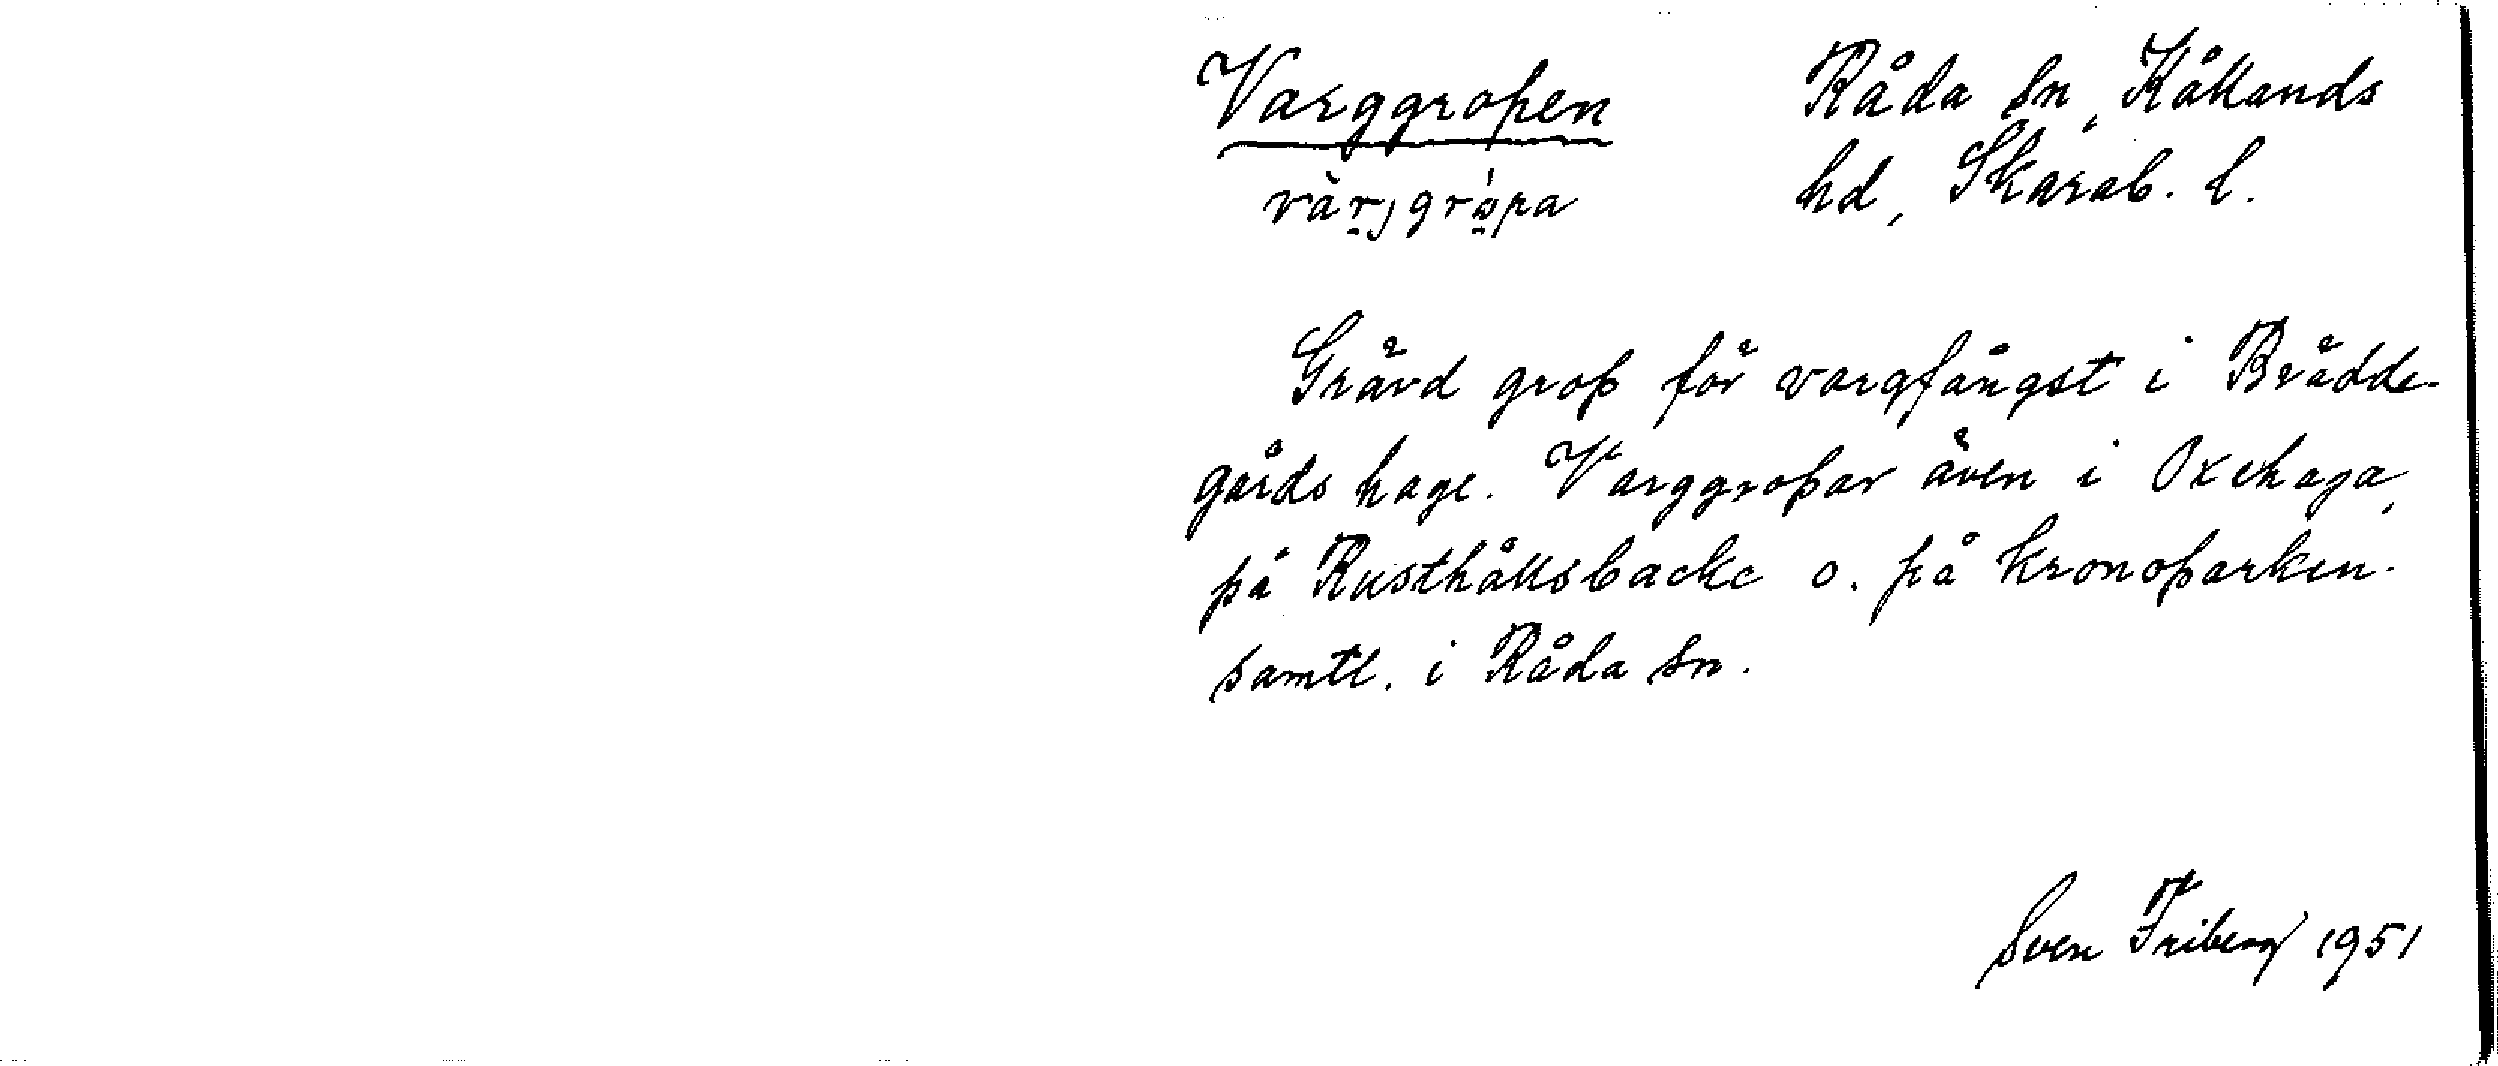 Varggropen Råda sn, Kållands
värjgropa hd, Skarab. l.
Grävd grop för vargfångst i Brädde-
gårds hage. Varggropar även i Oxehaga,
på Rusthållsbacke o. på kronoparken.
samtl. i Råda sn.
Sven Friberg 1951